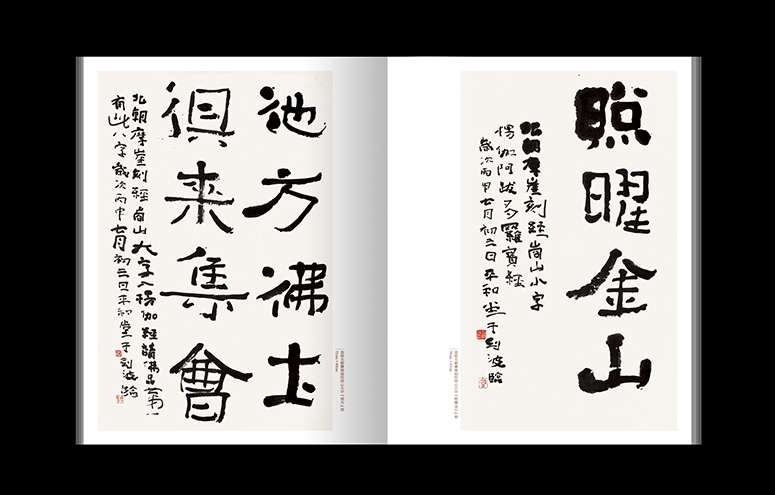 他方佛土
俱来集會
北朝摩崖刻經岡山大字入楞伽經請佛品第一
有此八字歲次丙申七月初二日平和堂于刘波臨
照曜金山
北朝摩崖刻經岡山小字
楞伽阿跋多羅寶經
歲次丙申七月初二日平和堂于刘波臨